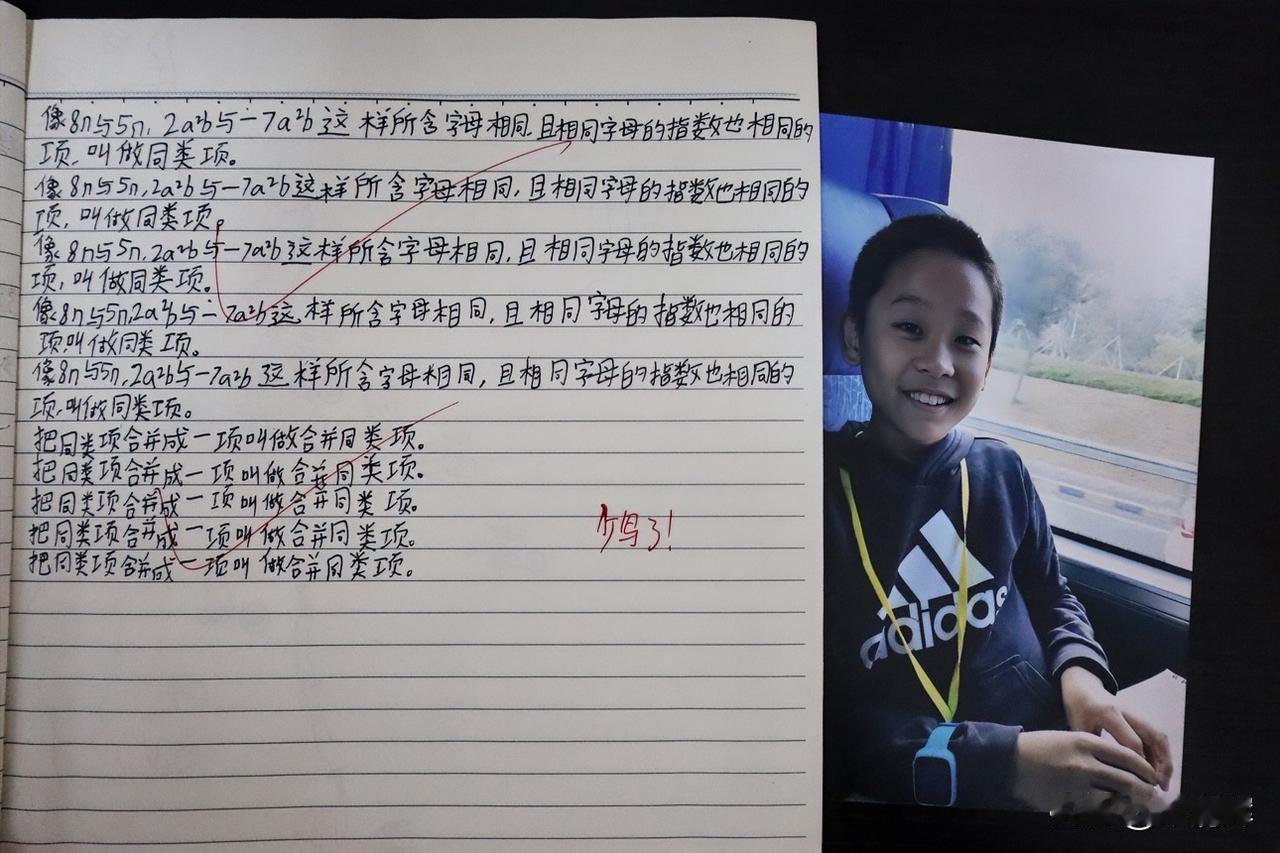 像8n与5n,2a²b与-7a²b这样所含字母相同,且相同字母的指数也相同的
项,叫做同类项。
像8n与5n,2a²b与-7a²b这样所含字母相同,且相同字母的指数也相同的
项,叫做同类项。
像8n与5n,2a²b与-7a²b这样所含字母相同,且相同字母的指数也相同的
项,叫做同类项。
像8n与5n,2a²b与-7a²b这样所含字母相同,且相同字母的指数也相同的
项,叫做同类项。
像8n与5n,2a²b与-7a²b这样所含字母相同,且相同字母的指数也相同的
项,叫做同类项。
把同类项合并成一项叫做合并同类项。
把同类项合并成一项叫做合并同类项。
把同类项合并成一项叫做合并同类项。
把同类项合并成一项叫做合并同类项。
把同类项合并成一项叫做合并同类项。
少写了!
adidas